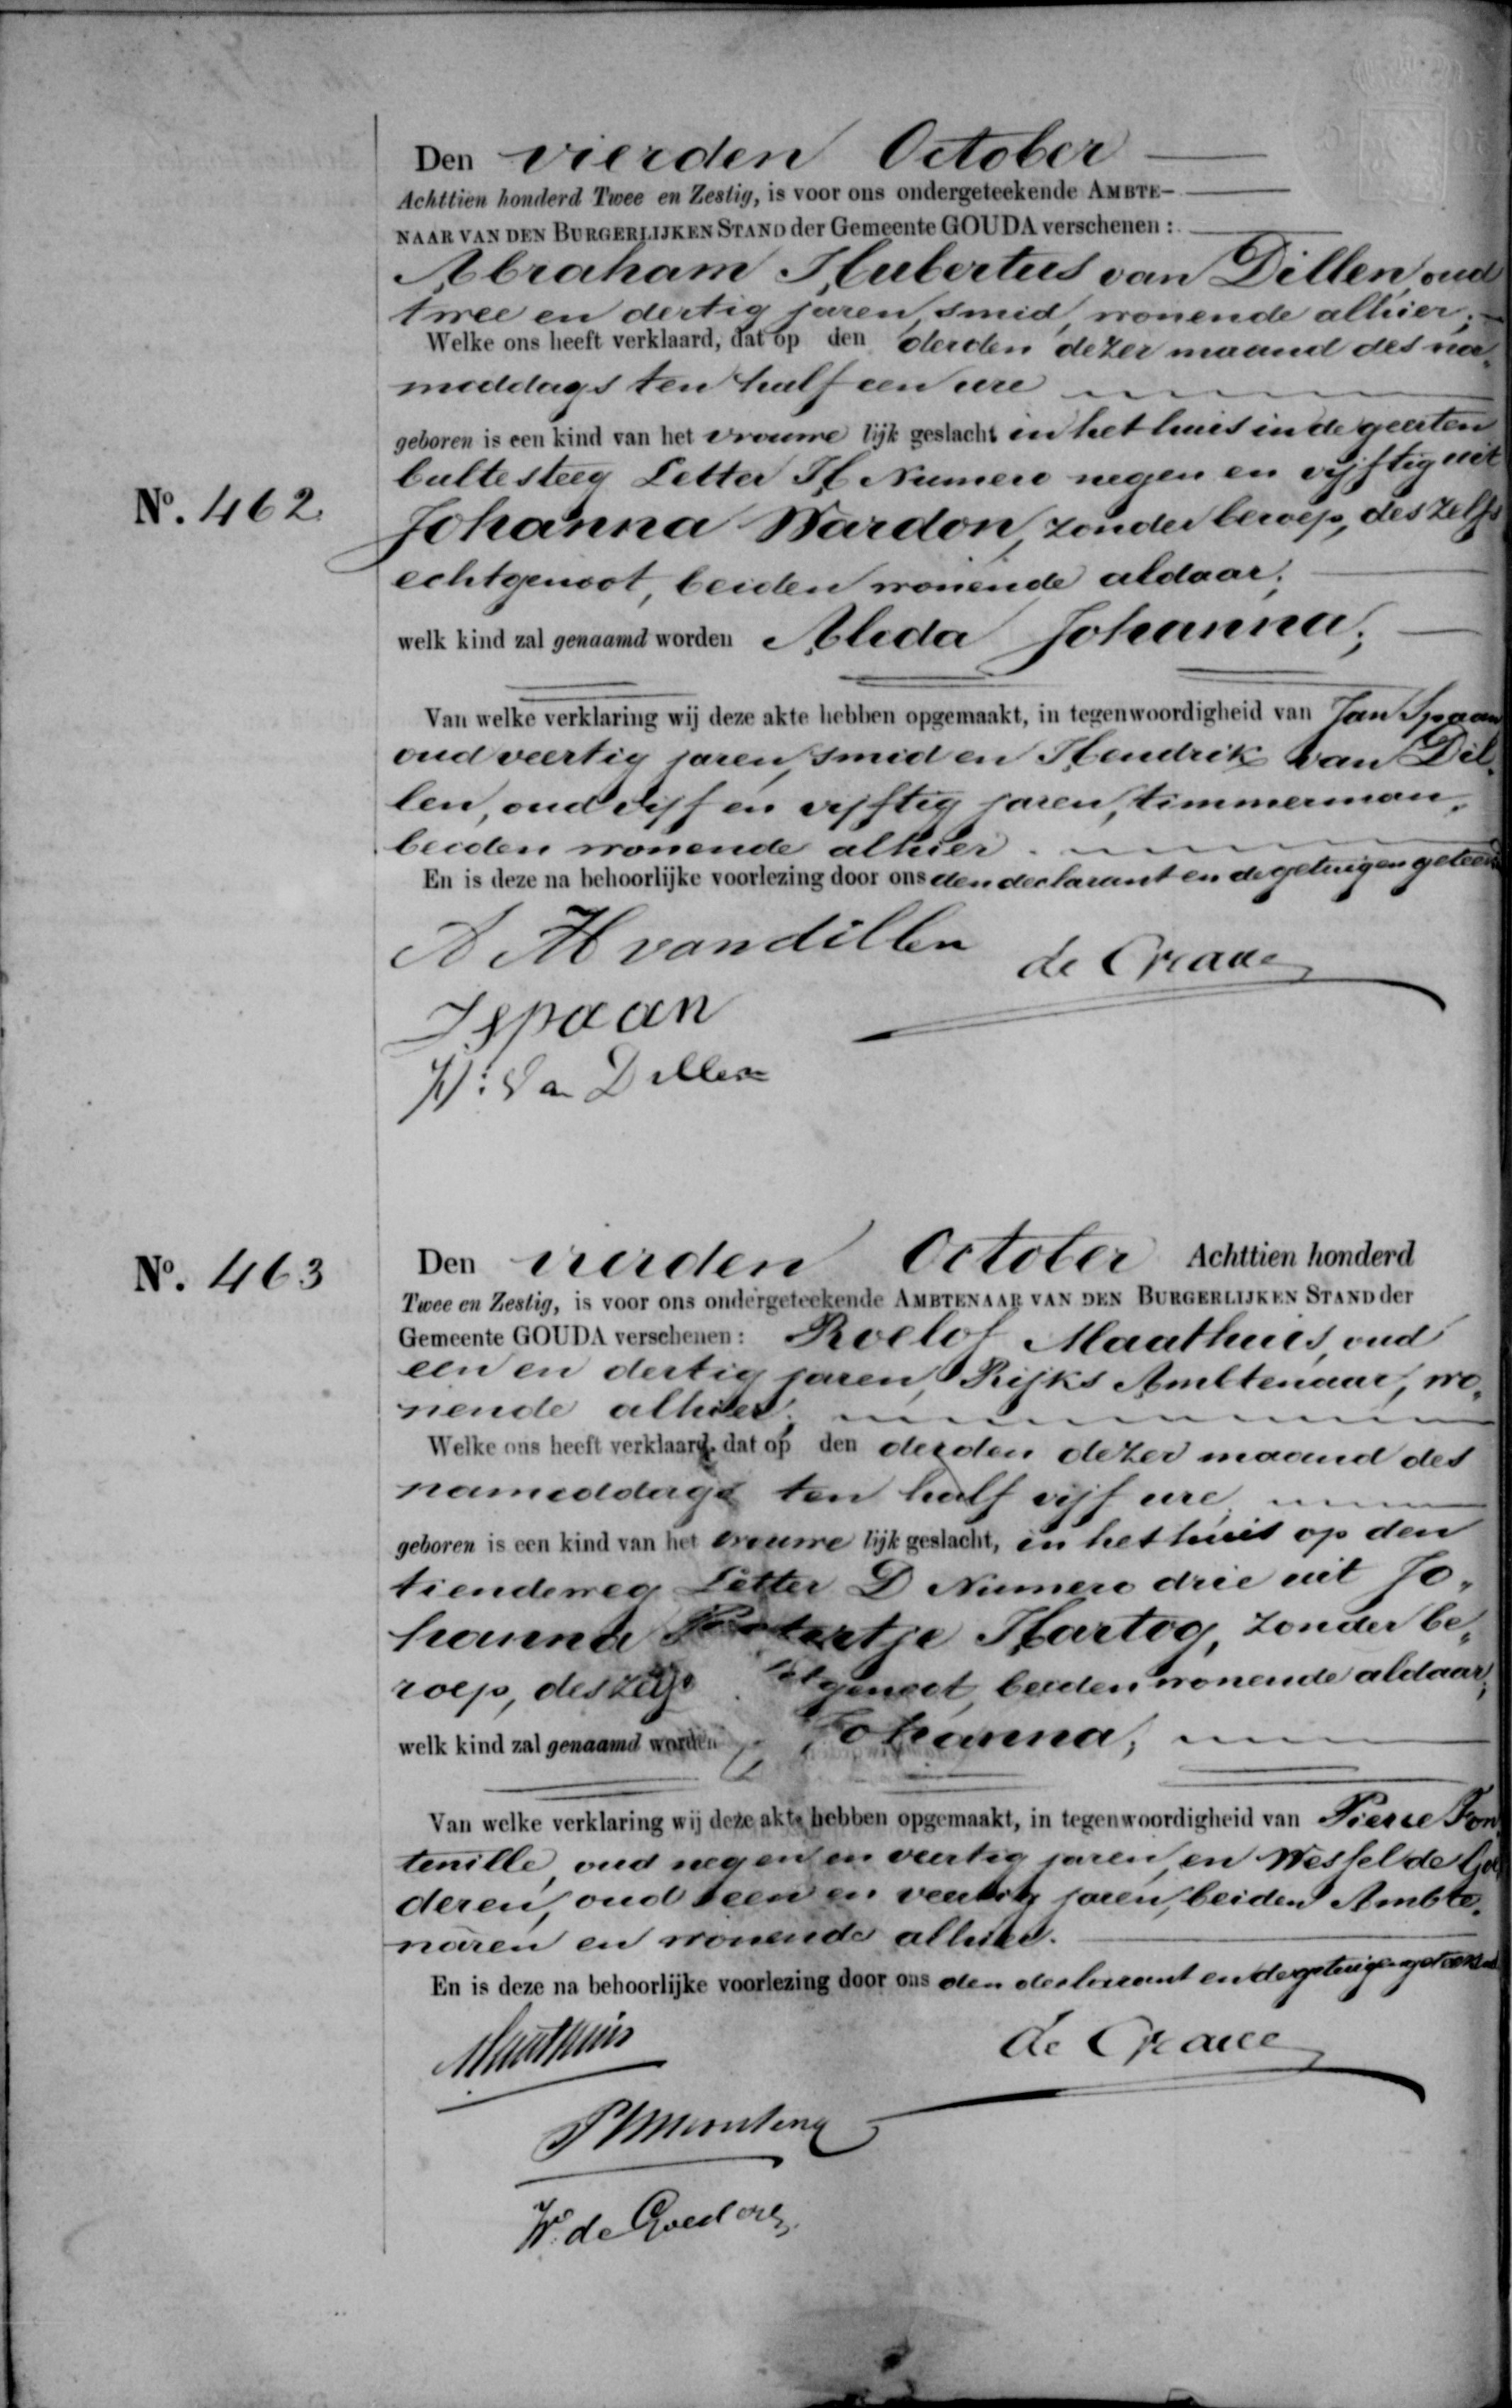 Den vierden October
Achttien honderd Twee en Zestig, is voor ons ondergeteekende AMBTE-
NAAR VAN DEN BURGERLIJKEN STAND der Gemeente GOUDA verschenen:
Abraham Hubertus van Dillen, oud
twee en dertig jaren, smid, wonende alhier;
Welke ons heeft verklaard, dat op den derden dezer maand des na,
middags ten half een ure
geboren is een kind van het vrouwe lijk geslacht in het huis in de geerten
bultesteeg Letter H Numero negen en vijftig uit
No. 462.
Johanna Wardon, zonder beroep, deszelfs
echtgenoot, beiden wonende aldaar;
welk kind zal genaamd worden Aleda Johanna;
Van welke verklaring wij deze akte hebben opgemaakt, in tegenwoordigheid van Jan Spaan
oud veertig jaren, smid en Hendrik van Dil,
len, oud vijf en vijftig jaren, timmerman,
beiden wonende alhier.
En is deze na behoorlijke voorlezing door ons den declarant en de getuigen geteekend
A H van dillen de Graaue
J Spaan
H: Van Dillen
No. 463
Den vierden October Achttien honderd
Twee en Zestig, is voor ons ondergeteekende AMBTENAAR VAN DEN BURGERLIJKEN STAND der
Gemeente GOUDA verschenen: Roelof Maathuis, oud
een en dertig jaren, Rijks Ambtenaar, wo,
nende alhier;
Welke ons heeft verklaard, dat op den derden dezer maand des
namiddags ten half vijf ure
geboren is een kind van het vrouwe lijk geslacht, in het huis op den
tiendeweg Letter D Numero drie uit Jo,
hanna Hartog, zonder be,
roep, deszelfs genoot, beiden wonende aldaar;
welk kind zal genaamd worden Johanna;
Van welke verklaring wij deze akte hebben opgemaakt, in tegenwoordigheid van Pierre Fon
tenille, oud negen en veertig jaren, en Wessel de Goe
deren, oud een en veertig jaren, beiden Ambte,
naren en wonende alhier.
En is deze na behoorlijke voorlezing door ons den declarant en de getuigen geteekend
Maathuis de Graaue
W. de Goederen